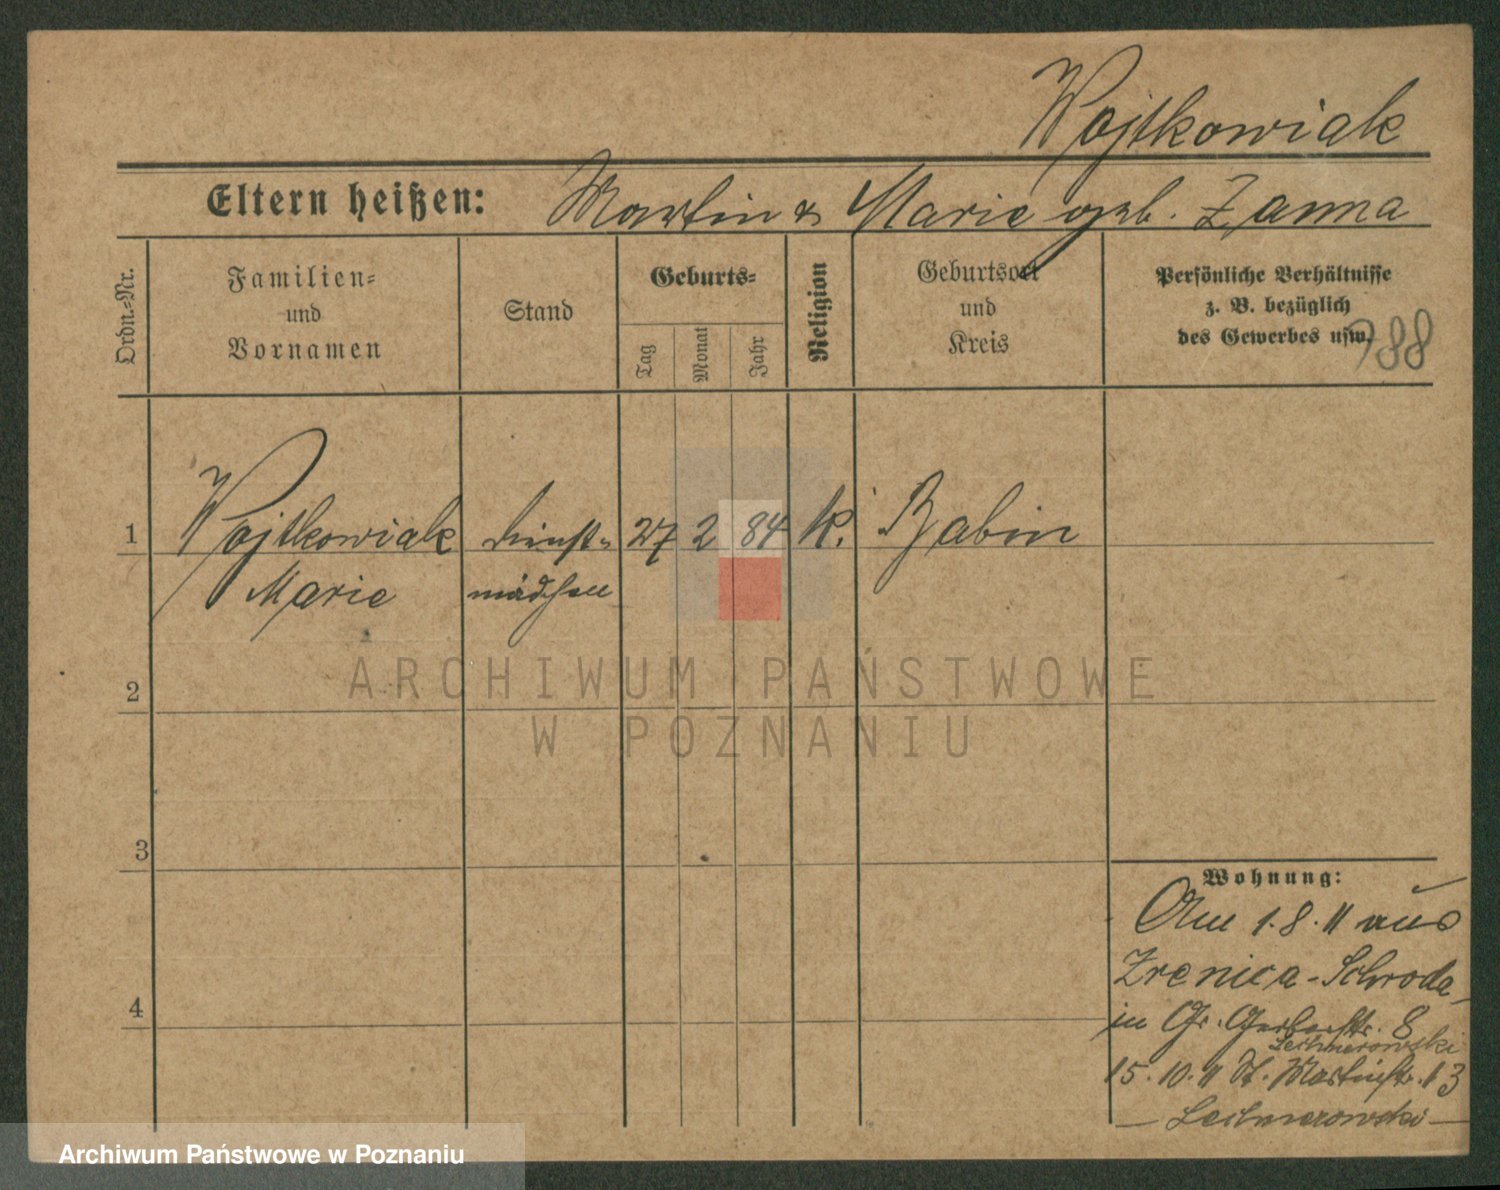 Wojtkowiak
Eltern heißen: Martin & Marie geb. Zanna
Ordn.=Nr.
Familien=
und
Vornamen
Stand
Geburts=
Tag
Monat
Jahr
Religion
Geburtsort
und
Kreis
Persönliche Verhältnisse
z. B. bezüglich
des Gewerbes usw.
788
1 Wojtkowiak Dienst= 27 2 84 k. Babin
Marie mädchen
2
3
4
Wohnung:
Am 1.8.11 aus
Zrenica-Schroda
in Gr. Gerberstr. 8
15.10.11 St. Martinstr. 13
ARCHIWUM PAŃSTWOWE
W POZNANIU
Archiwum Państwowe w Poznaniu